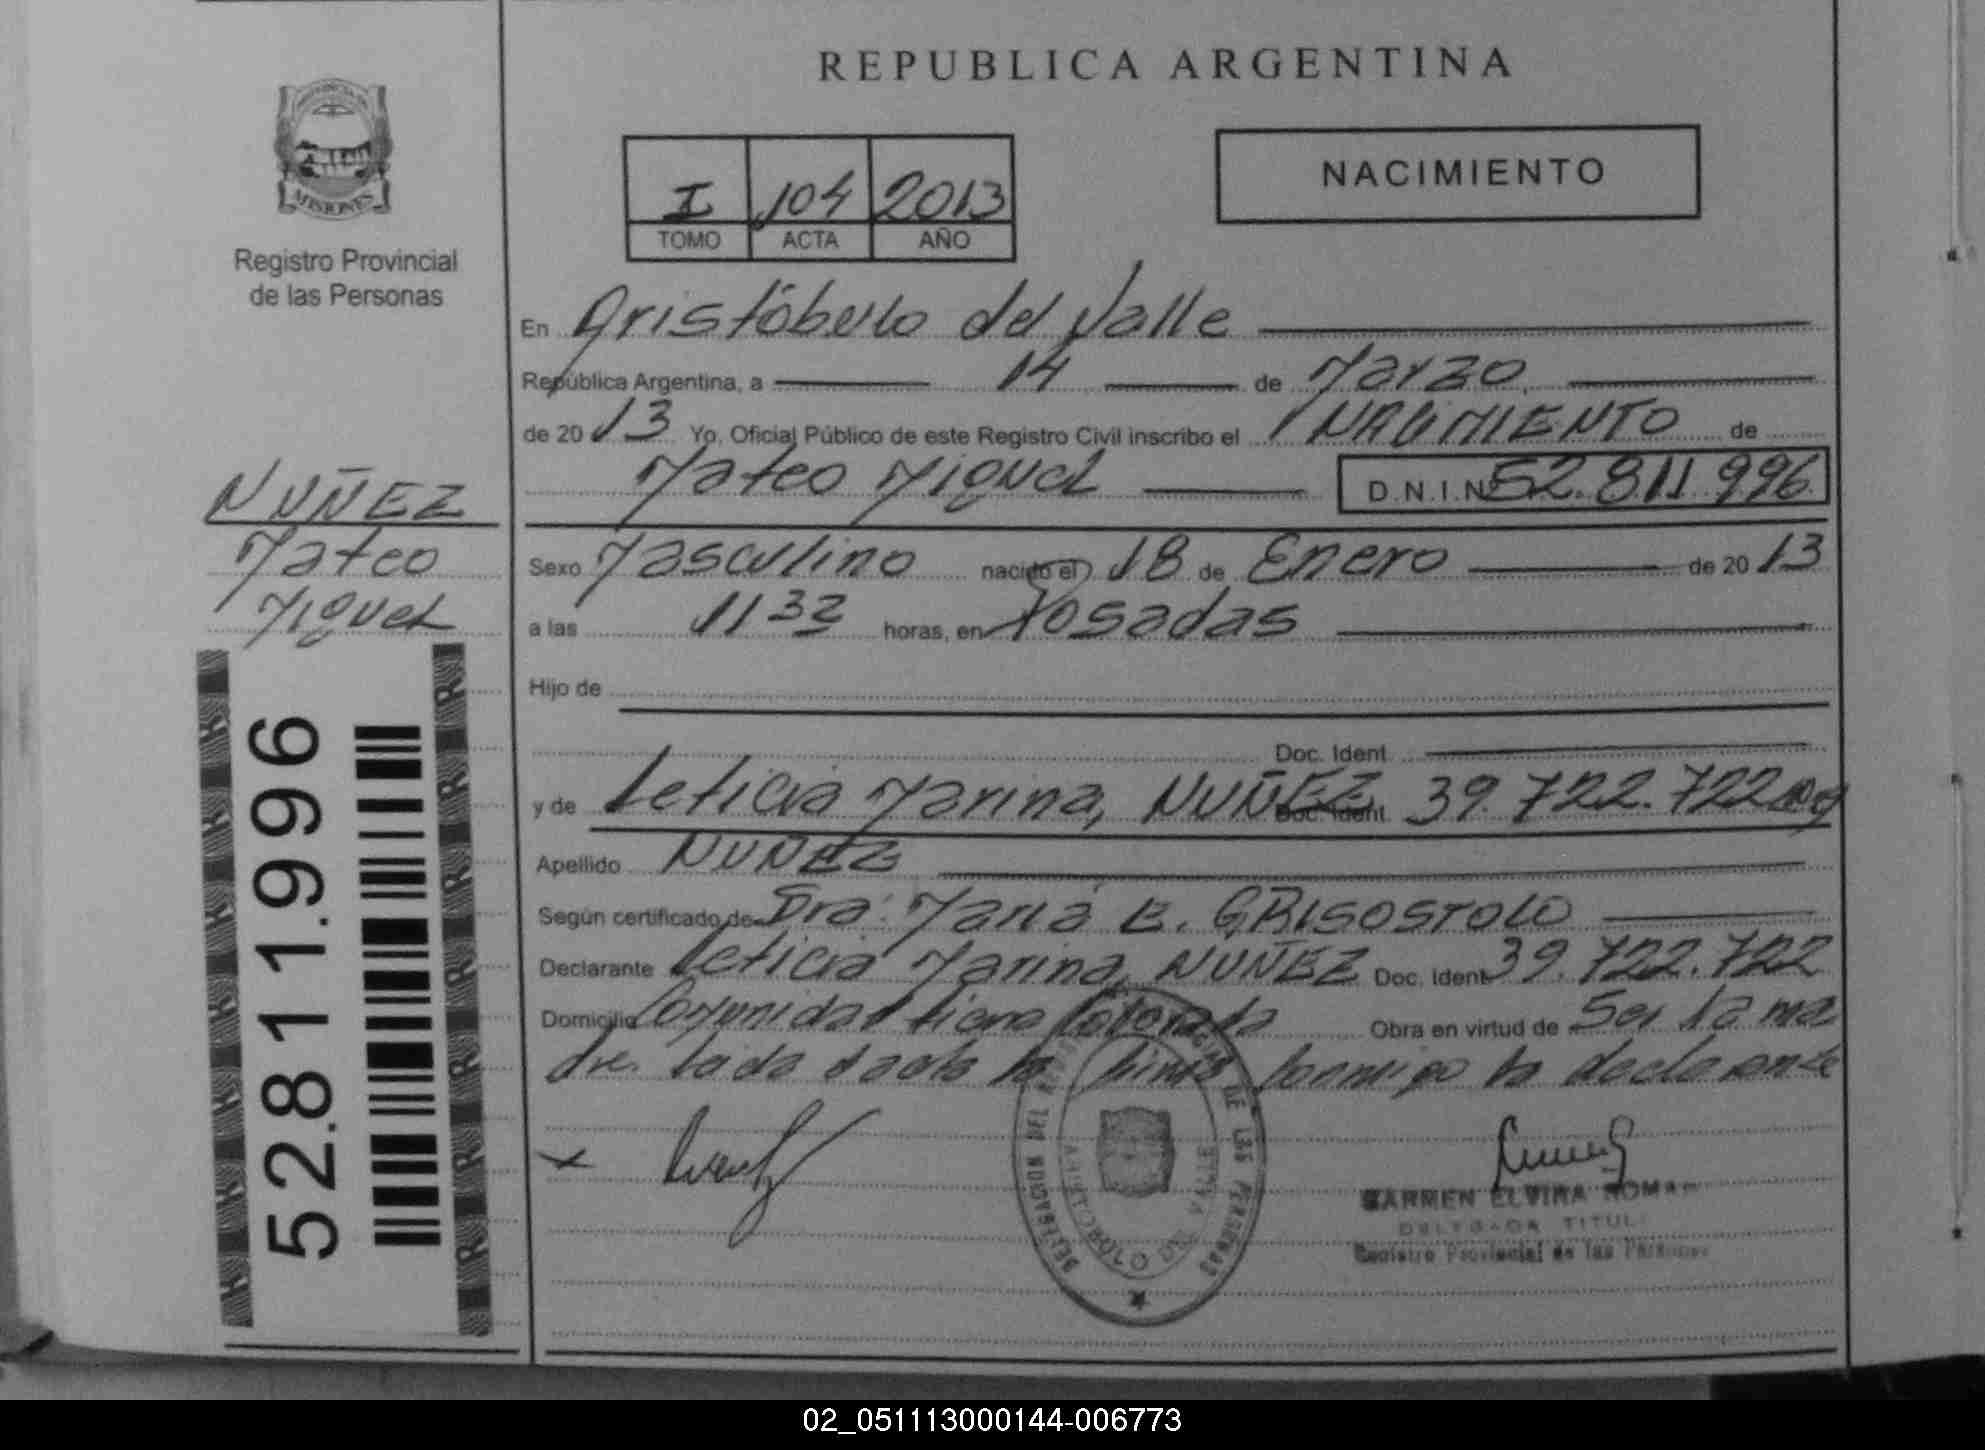 REPUBLICA ARGENTINA
PROVINCIA DE
MISIONES
Registro Provincial
de las Personas
I 104 2013
TOMO ACTA AÑO
NACIMIENTO
En Aristóbulo del Valle
República Argentina, a 14 de Marzo
de 2013 Yo, Oficial Público de este Registro Civil inscribo el NACIMIENTO de
Mateo Miguel D.N.I.Nº 52.811.996
NUÑEZ
Mateo
Miguel
52.811.996
Sexo Masculino nacido el 18 de Enero de 2013
a las 11 32 horas, en Posadas
Hijo de
Doc. Ident.
y de Leticia Marina, NUÑEZ Doc. Ident. 39.722.722
Apellido NUÑEZ
Según certificado de Dra. María E. GRISOSTOLO
Declarante Leticia Marina, NUÑEZ Doc. Ident. 39.722.722
Domicilio Comunidad Obra en virtud de Ser la ma
dre. firma conmigo la declarante
x
DELEGACION DEL DE LAS PERSONAS
ARISTOBULO DEL VALLE
CARMEN ELVIRA
DELEGADA TITUL
Registro Provincial de las Personas
02_051113000144-006773